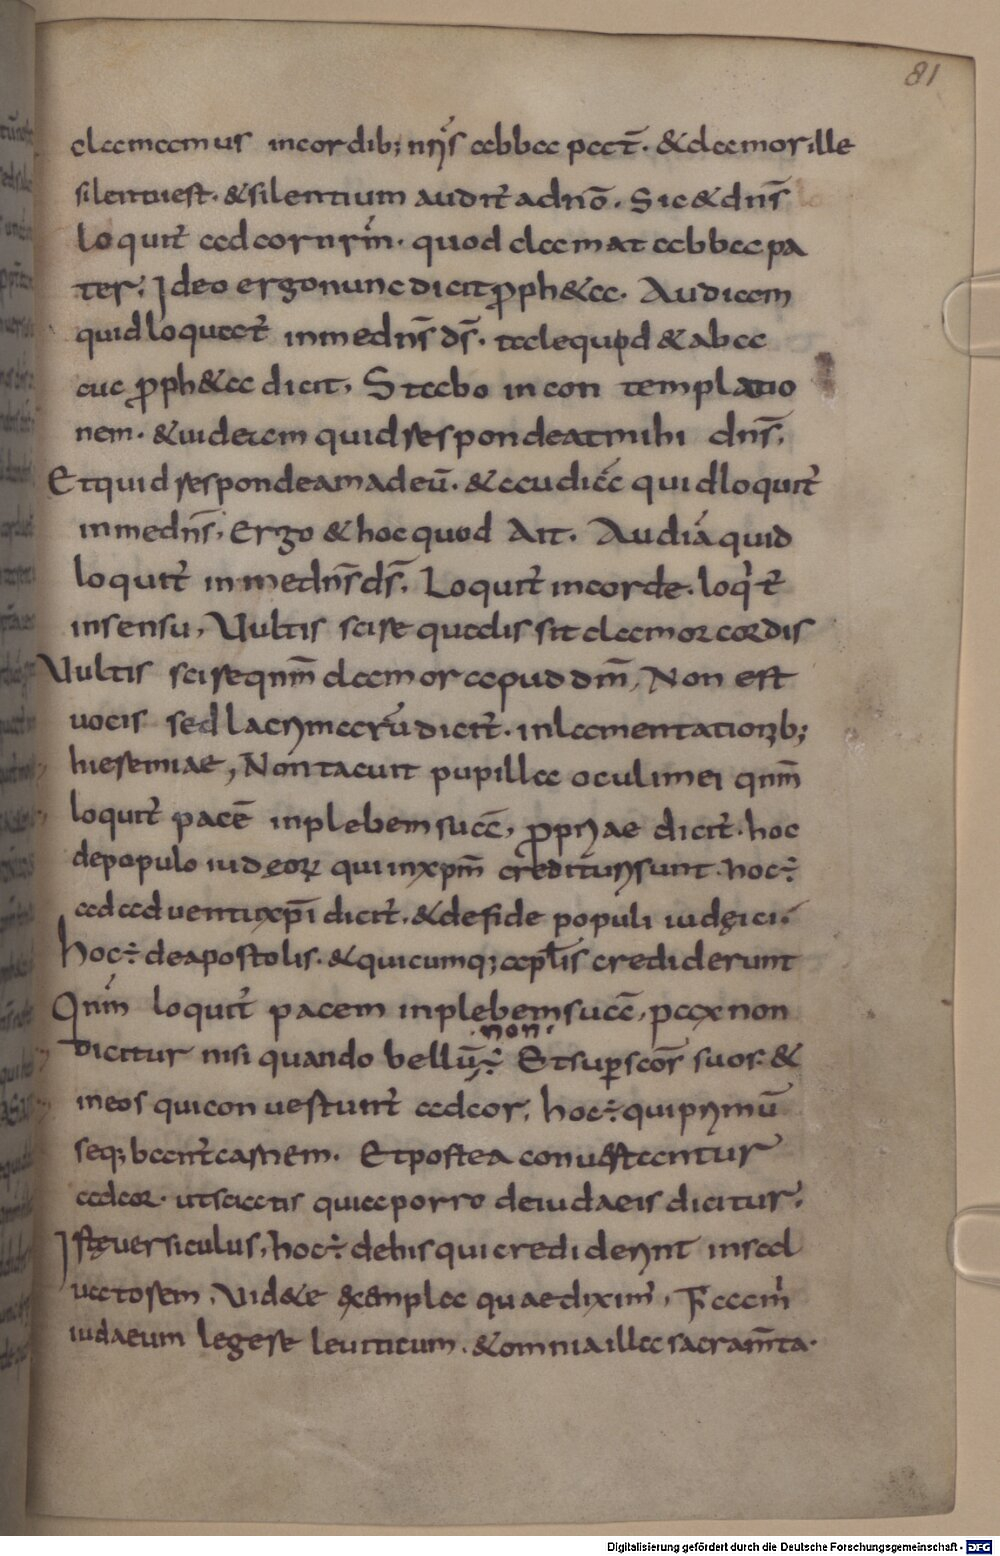 81
clamamus incordib; nr̄is abba pat̄. & clamor ille
silentiuest. & silentium audit̄ adn̄o. Sic & dn̄s
loquit̄ ad cor nr̄m. quod clamat abba pa
ter; Ideo ergo nunc dicit ꝓph&a. Audiam
quid loquat̄ in me dn̄s ds̄. tale quod & abba
cuc ꝓph&a dicit, Stabo in con templatio
nem. & uideam quid respondeat mihi dn̄s;
Et quid respondeam ad eū. & audiā quid loquit̄
in me dn̄s; Ergo & hoc quod Ait. Audiā quid
loquit̄ in me dn̄s ds̄. Loquit̄ in corde. loq̇t̄
in sensu, Uultis scire qualis sit clamor cordis
Uultis scire qnm̄ clamor apud dm̄, Non est
uocis sed lacrymarū dicit̄. in lamentationib;
hieremiae, Non taceat pupilla oculi mei qnm̄
loquit̄ pacē in plebem suā, ꝓpriae dicit̄. hoc
de populo iudeoꝝ qui in xpm̄ credituri sunt. hoc÷
ad aduentū xp̄i dicit̄. & de fide populi iudęici.
hoc÷ de apostolis. & quicumq; aplīs crediderunt
Qnm̄ loquit̄ pacem in plebem suā, pax non
dicitur nisi quando bellū .non. ÷ Et sup̱ scōs suos. &
in eos qui conuertunt̄ ad cor, hoc÷ qui primū
seq;bant̄ carnem. Et postea conuertantur
ad cor. ut sciatis quia porro de iudaeis dicitur;
Iste uersiculus, hoc÷ de his qui crediderunt in sal
uatorem, Uid&e exempla quae diximꝰ, Facim̄
iudaeum legere leuiticum. & omnia illa sacram̄ta.
Digitalisierung gefördert durch die Deutsche Forschungsgemeinschaft - DFG